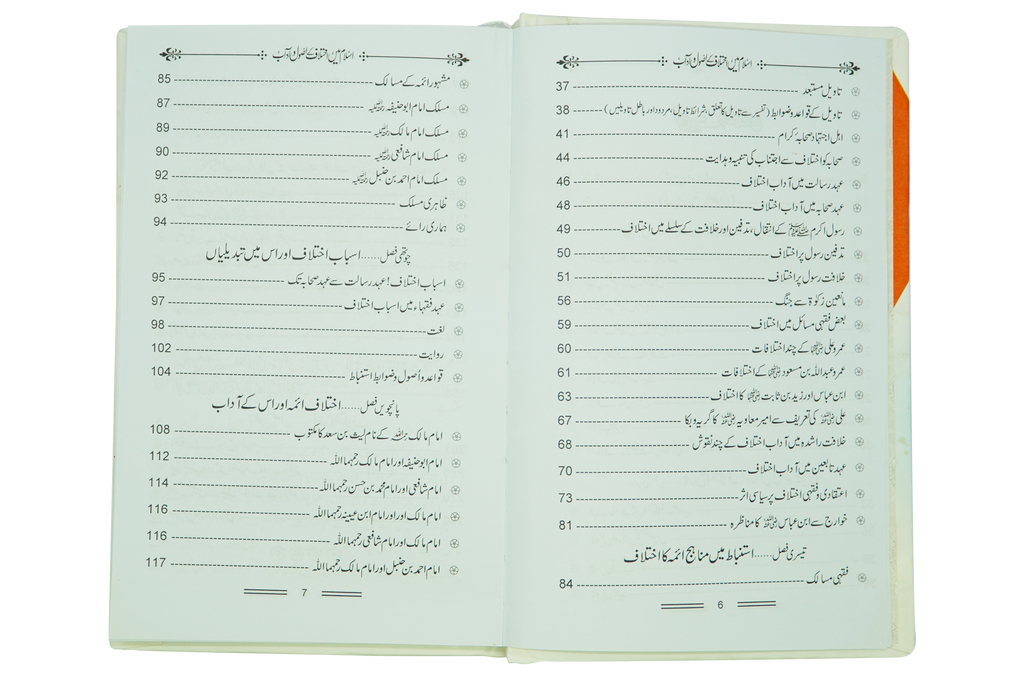 اسلام میں اختلاف کے اصول و آداب
تاویل مستبعد 37
تاویل کے قواعد و ضوابط (تفسیر سے تاویل کا تعلق، شرائط تاویل، مردود اور باطل تاویلیں) 38
اہل اجتہاد صحابہ کرام 41
صحابہ کو اختلاف سے اجتناب کی تنبیہ و ہدایت 44
عہد رسالت میں آداب اختلاف 46
عہد صحابہ میں آداب اختلاف 48
رسول اکرم ﷺ کے انتقال، تدفین اور خلافت کے سلسلے میں اختلاف 49
تدفین رسول پر اختلاف 50
خلافت رسول پر اختلاف 51
مانعین زکوٰۃ سے جنگ 56
بعض فقہی مسائل میں اختلاف 59
عمر و علی رضی اللہ عنہما کے چند اختلافات 60
عمر و عبداللہ بن مسعود رضی اللہ عنہما کے اختلافات 61
ابن عباس اور زید بن ثابت رضی اللہ عنہما کا اختلاف 63
علی رضی اللہ عنہ کی تعریف سے امیر معاویہ رضی اللہ عنہ کا گریہ و بکا 67
خلافت راشدہ میں آداب اختلاف کے چند نقوش 68
عہد تابعین میں آداب اختلاف 70
اعتقادی و فقہی اختلاف پر سیاسی اثر 73
خوارج سے ابن عباس رضی اللہ عنہ کا مناظرہ 81
تیسری فصل...... استنباط میں مناہج ائمہ کا اختلاف
فقہی مسالک 84
6
اسلام میں اختلاف کے اصول و آداب
مشہور ائمہ کے مسالک 85
مسلک امام ابوحنیفہ رحمۃ اللہ علیہ 87
مسلک امام مالک رحمۃ اللہ علیہ 89
مسلک امام شافعی رحمۃ اللہ علیہ 90
مسلک امام احمد بن حنبل رحمۃ اللہ علیہ 92
ظاہری مسلک 93
ہماری رائے 94
چوتھی فصل...... اسباب اختلاف اور اس میں تبدیلیاں
اسباب اختلاف! عہد رسالت سے عہد صحابہ تک 95
عہد فقہاء میں اسباب اختلاف 97
لغت 98
روایت 102
قواعد و اُصول و ضوابط استنباط 104
پانچویں فصل...... اختلاف ائمہ اور اس کے آداب
امام مالک رحمہ اللہ کے نام لیث بن سعد کا مکتوب 108
امام ابوحنیفہ اور امام مالک رحمہما اللہ 112
امام شافعی اور امام محمد بن حسن رحمہما اللہ 114
امام مالک اور اور امام ابن عیینہ رحمہما اللہ 116
امام مالک اور امام شافعی رحمہما اللہ 116
امام احمد بن حنبل اور امام مالک رحمہما اللہ 117
7